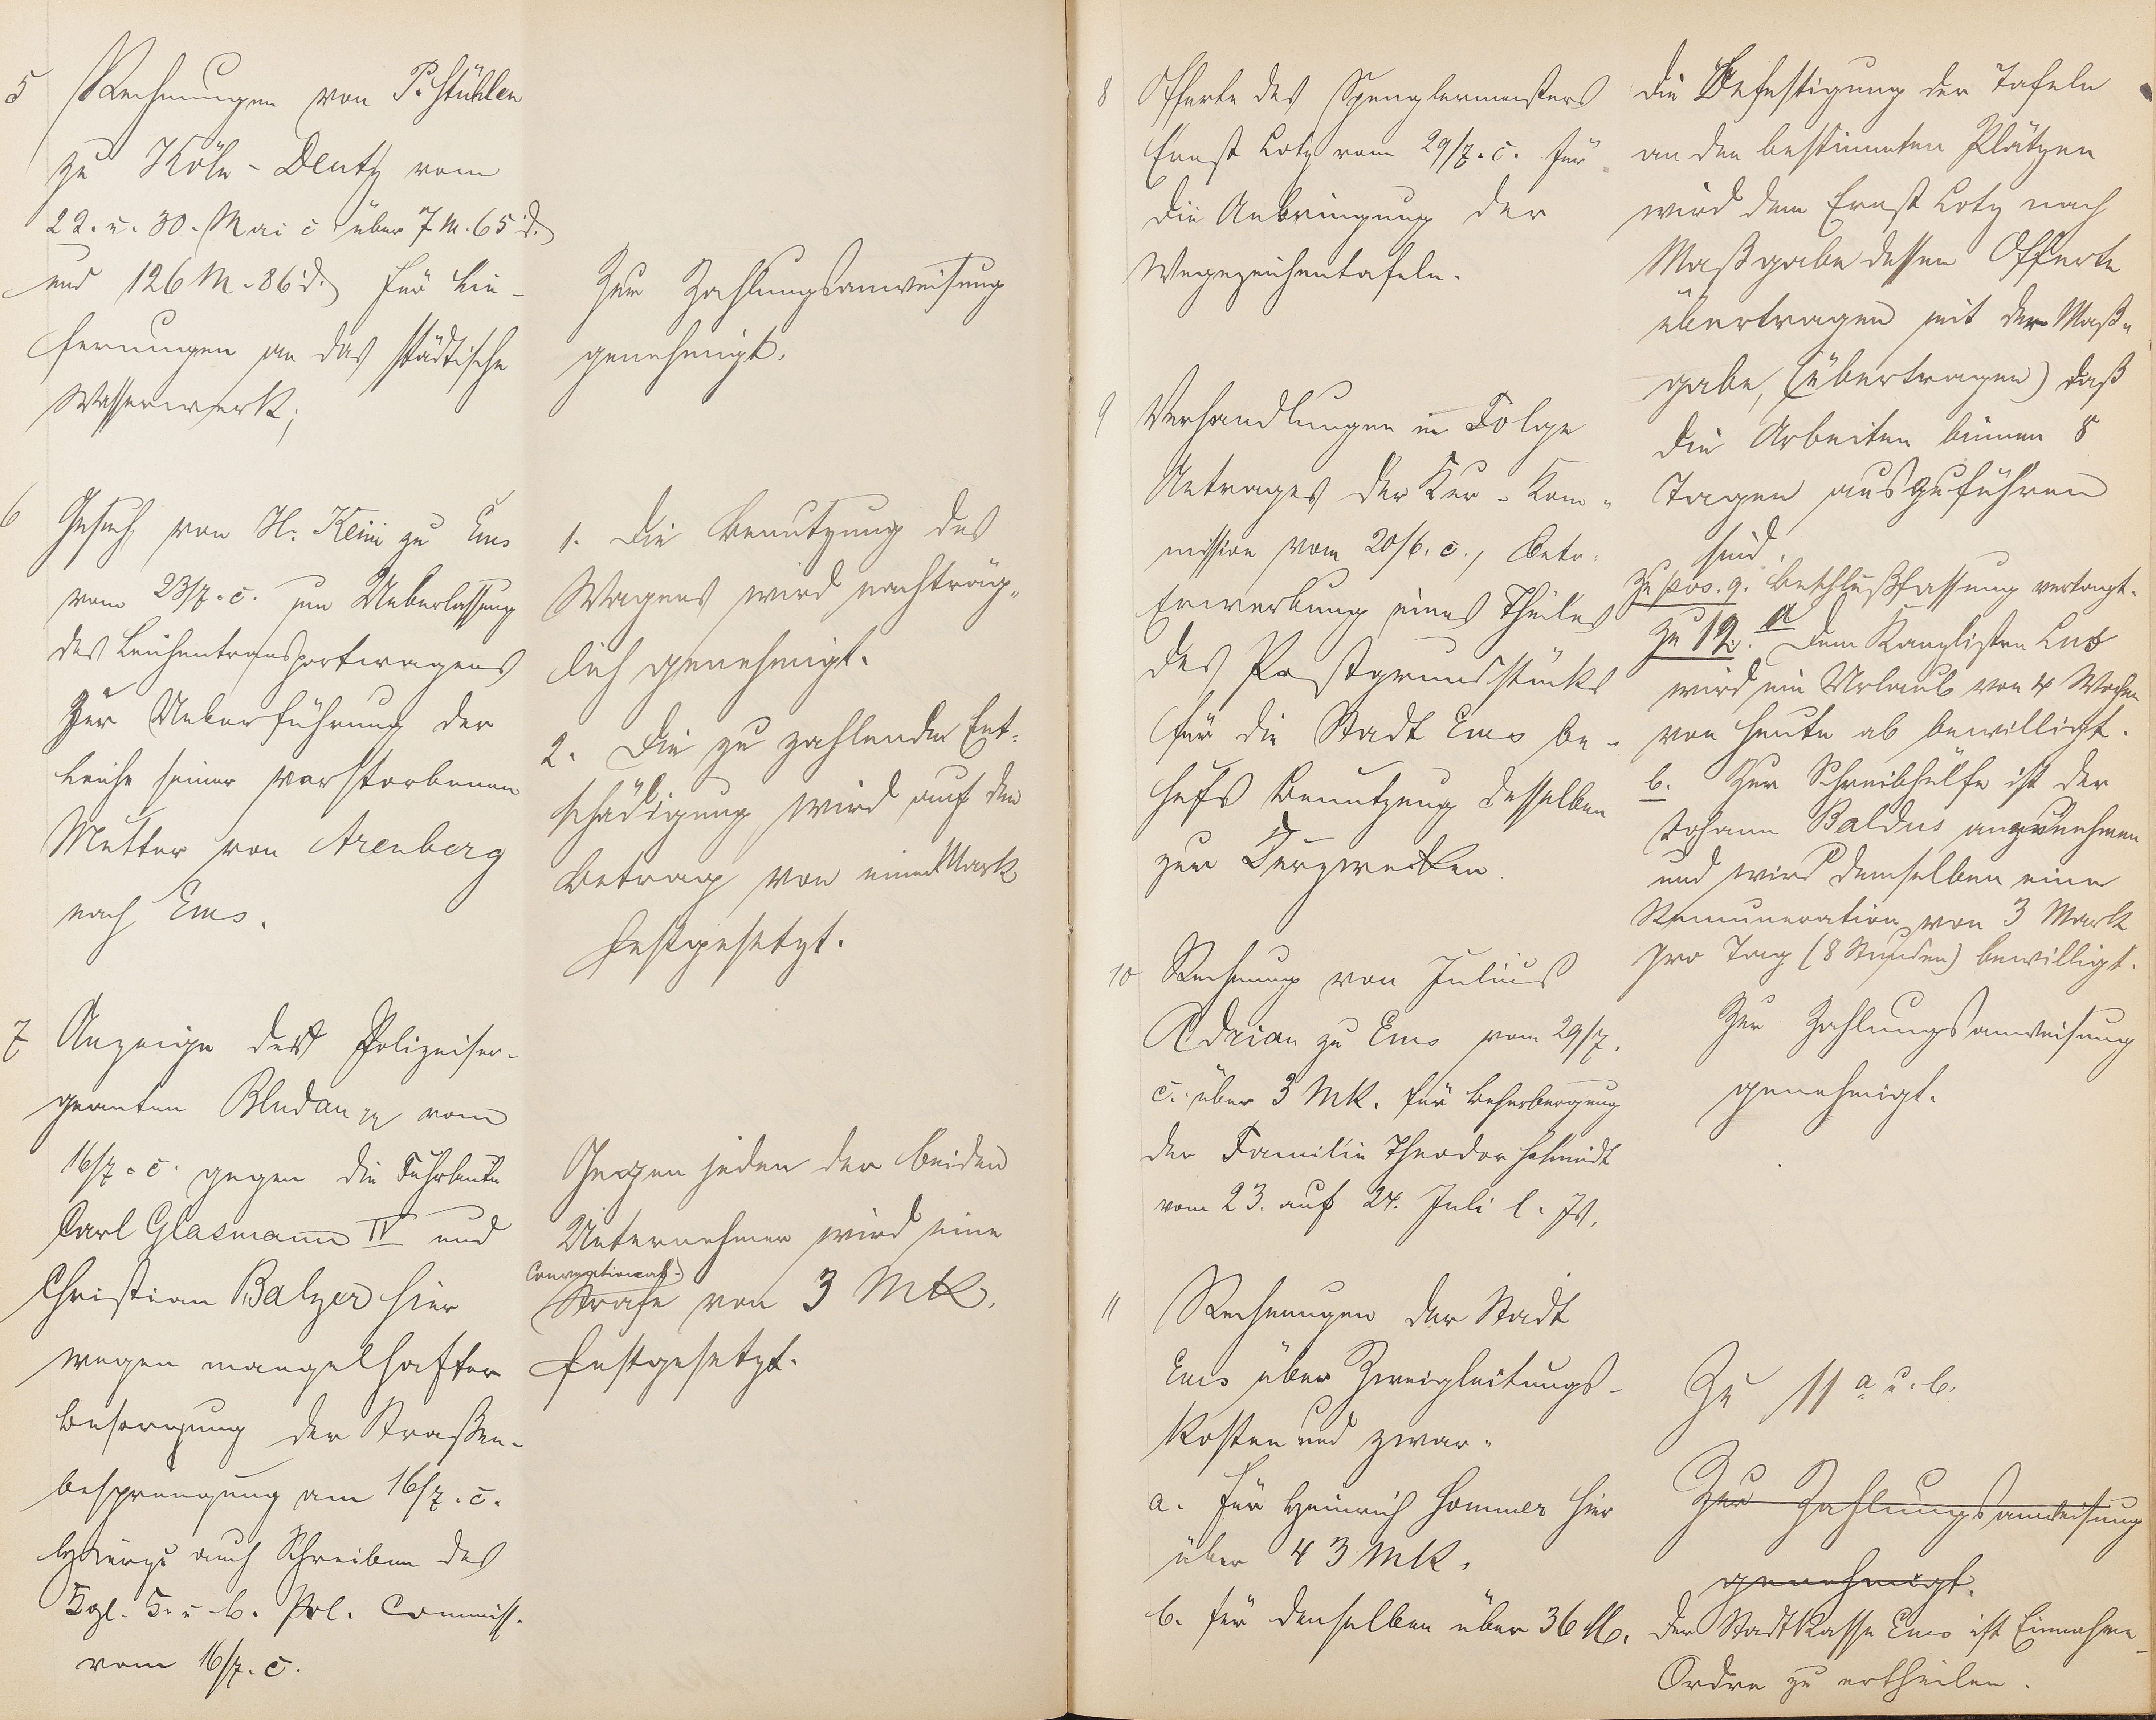 5 Rechnungen von P. Stühlen
zu Köln-Deutz vom
22. u. 30. Mai c über 7 M. 65 d.
und 126 M. 86 d. für Lie-
ferungen an das städtische
Wasserwerk;
Zur Zahlungsanweisung
genehmigt.
6 Gesuch von H. Keim zu Ems
vom 23/7. c. um Ueberlassung
des Leichentransportwagens
zur Ueberführung der
Leiche seiner verstorbenen
Mutter von Arenberg
nach Ems.
1. Die Benutzung des
Wagens wird nachträg-
lich genehmigt.
2. Die zu zahlende Ent-
schädigung wird auf den
Betrag von einer Mark
festgesetzt.
7 Anzeige des Polizeiser-
geanten Bludau vom
16/7. c. gegen die Fuhrleute
Carl Glasmann IV und
Christian Balzer hier
wegen mangelhafter
Besorgung der Straßen-
besprengung am 16/7. c.
Hierzu auch Schreiben des
Kgl. B. u. b. Pol. Commiss.
vom 16/7. c.
Gegen jeden der beiden
Unternehmer wird eine
Conventional-
Strafe von 3 Mk.
festgesetzt.
8 Offerte des Spenglermeisters
Ernst Lotz vom 29/7. c. für
die Anbringung der
Wegezeichentafeln.
Die Befestigung der Tafeln
an den bestimmten Plätzen
wird dem Ernst Lotz nach
Maßgabe dessen Offerte
übertragen mit der Maß-
gabe, (übertragen) daß
die Arbeiten binnen 8
Tagen auszuführen
sind.
9 Verhandlungen in Folge
Antrages der Kur-Kom-
mission vom 20/6. c., betr.
Erwerbung eines Theiles
des Postgrundstücks
für die Stadt Ems be-
hufs Benutzung desselben
zur Kurzwecken.
Zu pos. 9. Beschlußfassung vertagt.
Zu 12. a Dem Kanzlisten
wird ein Urlaub von 4 Wochen
von heute ab bewilligt.
b. Zur Schreibhülfe ist der
Johann Baldus anzunehmen
und wird demselben eine
Remuneration von 3 Mark
pro Tag (8 Stunden) bewilligt.
10 Rechnung von Julius
Adrian zu Ems vom 29/7.
c. über 3 Mk. für Beherbergung
der Familie Theodor Schmidt
vom 23. auf 24. Juli l. Js.
Zur Zahlungsanweisung
genehmigt.
11 Rechnungen der Stadt
Ems über Zweigleitungs-
kosten und zwar.
a. für Heinrich Hommer hier
über 43 Mk.
b. für denselben über 36 M.
Zu 11 a u. b.
Zur Zahlungsanweisung
genehmigt.
Der Stadtkasse Ems ist Einnahme-
Ordre zu ertheilen.